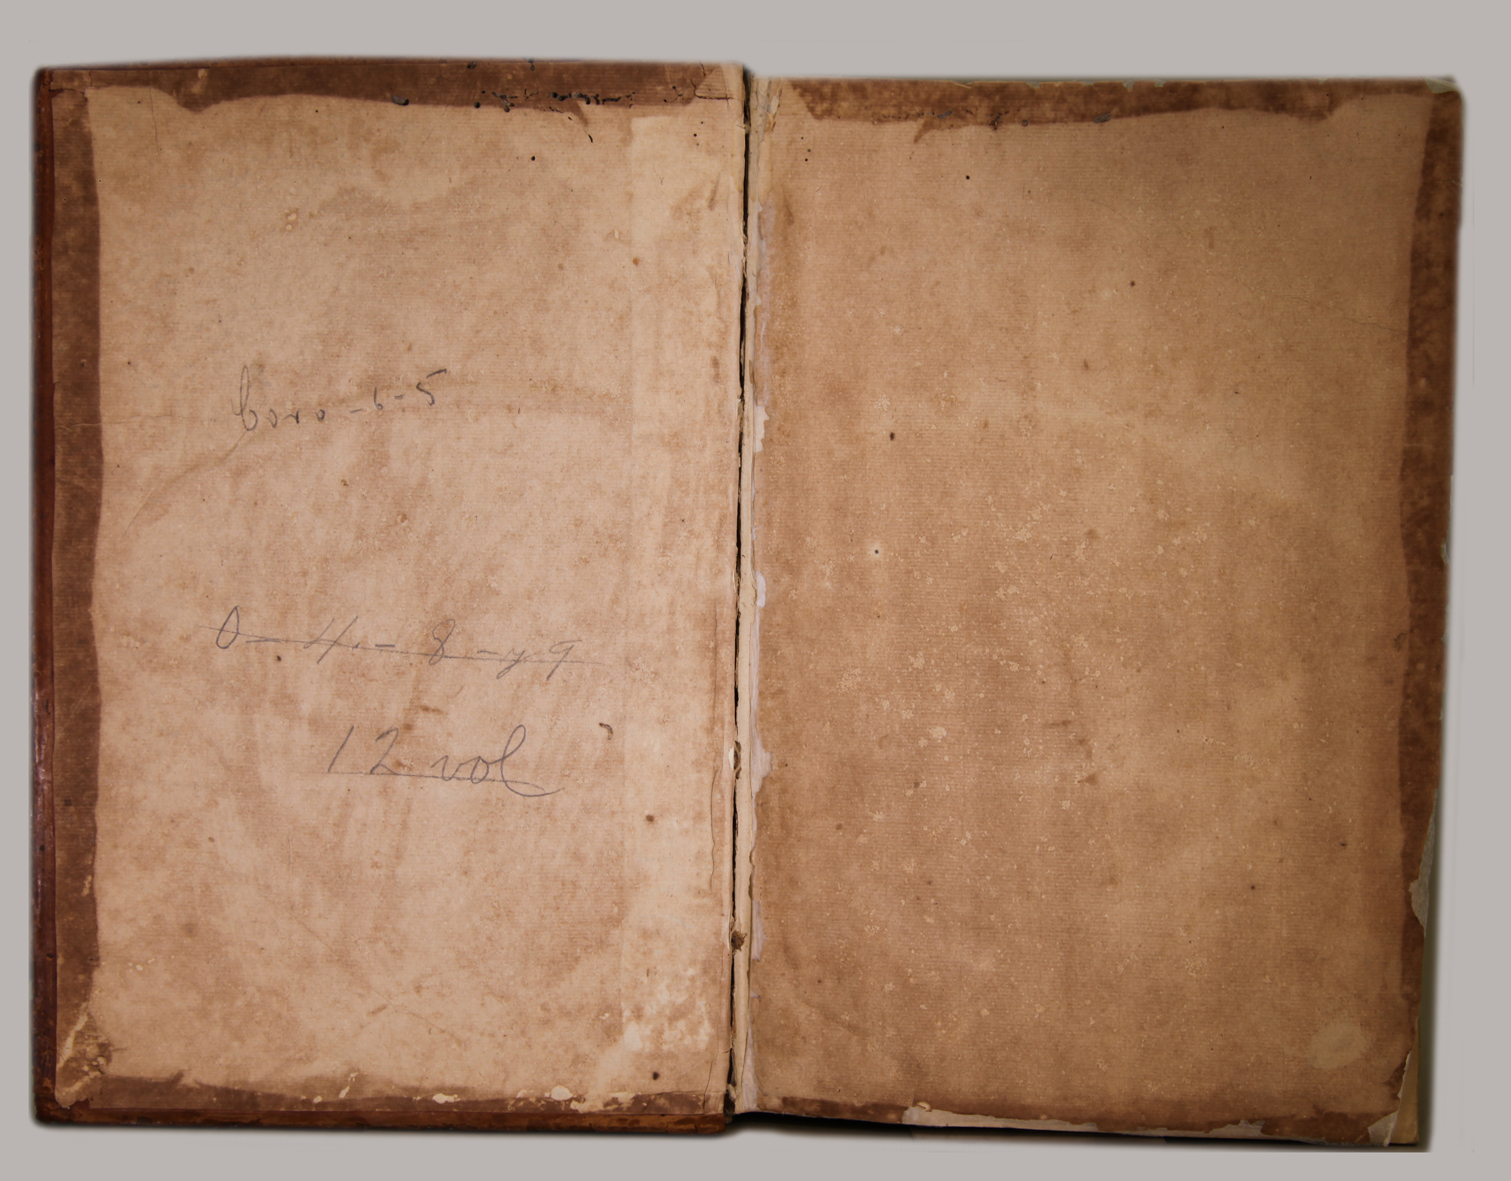 Coro-6-5
0-4.-8-y9
12 vol